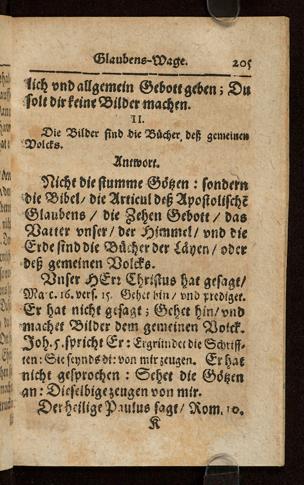 Glaubens-Wage. 205
lich vnd allgemein Gebott geben; Du
solt dir keine Bilder machen.
II.
Die Bilder sind die Bücher deß gemeinen
Volcks.
Antwort.
Nicht die stumme Götzen: sondern
die Bibel/ die Articul deß Apostolischē
Glaubens/ die Zehen Gebott/ das
Vatter vnser/ der Himmel/ vnd die
Erde sind die Bücher der Läyen/ oder
deß gemeinen Volcks.
Vnser HErr Christus hat gesagt/
Marc. 16. vers. 15. Gehet hin/ vnd prediget.
Er hat nicht gesagt; Gehet hin/ vnd
machet Bilder dem gemeinen Volck.
Joh. 5. spricht Er: Ergründet die Schriff-
ten: Sie seynds die von mir zeugen. Er hat
nicht gesprochen: Sehet die Götzen
an: Dieselbige zeugen von mir.
Der heilige Paulus sagt/ Rom. 10.
K